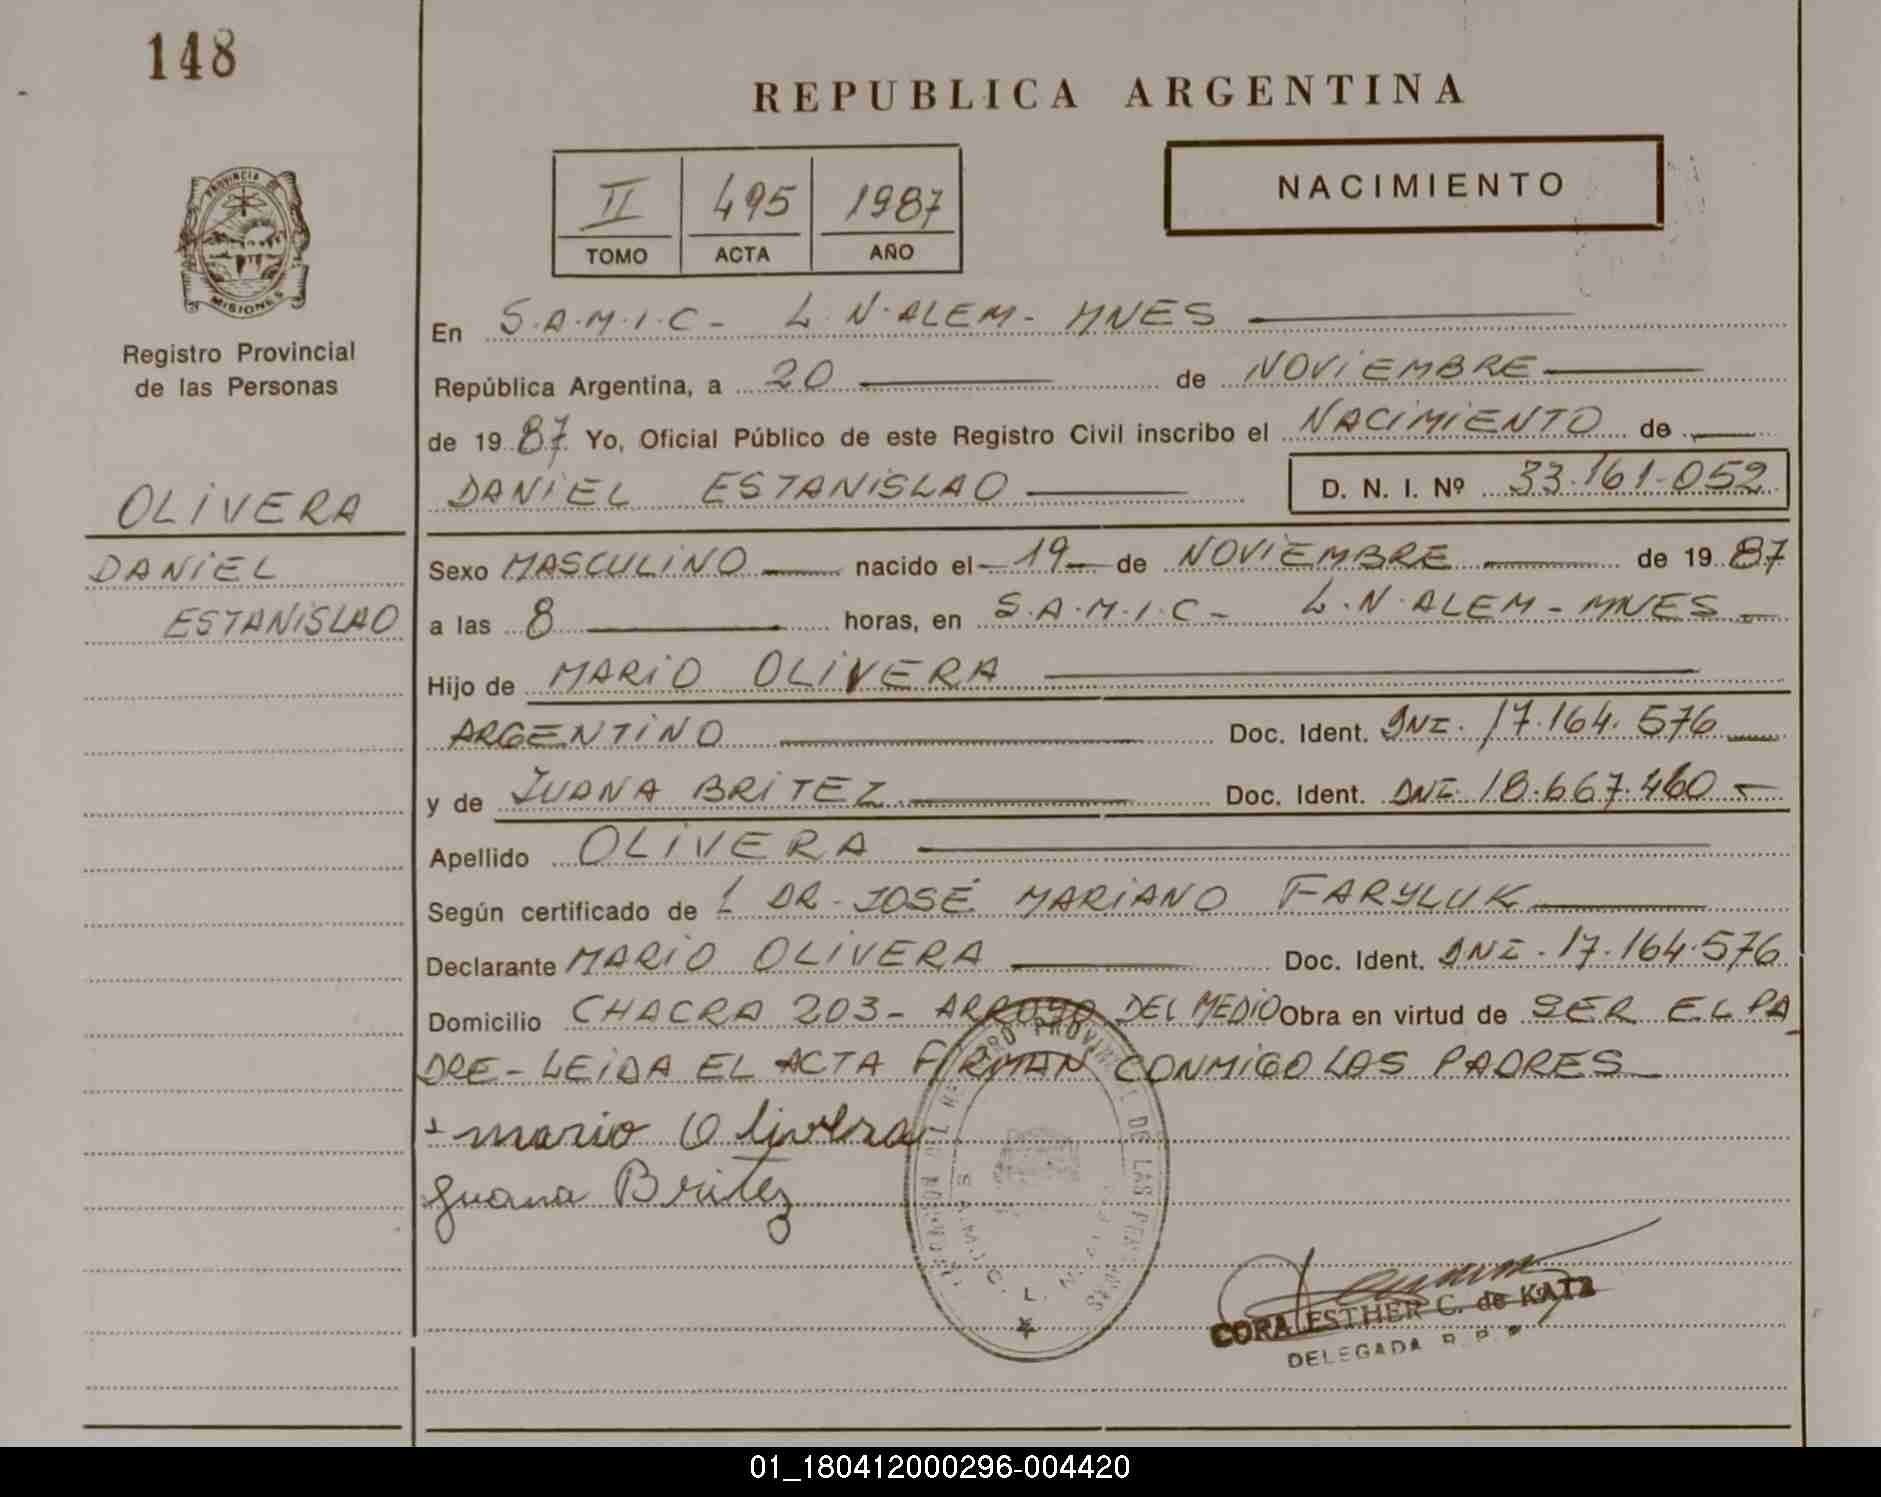 148
REPUBLICA ARGENTINA
II 495 1987
TOMO ACTA AÑO
NACIMIENTO
PROVINCIA DE
MISIONES
Registro Provincial
de las Personas
OLIVERA
DANIEL
ESTANISLAO
En S.A.M.I.C - L.N.ALEM - MNES
República Argentina, a 20 de NOVIEMBRE
de 1987 Yo, Oficial Público de este Registro Civil inscribo el NACIMIENTO de
DANIEL ESTANISLAO D. N. I. Nº 33.161.052
Sexo MASCULINO nacido el 19 de NOVIEMBRE de 1987
a las 8 horas, en S.A.M.I.C - L.N.ALEM - MNES
Hijo de MARIO OLIVERA
ARGENTINO Doc. Ident. DNI. 17.164.576
y de JUANA BRITEZ Doc. Ident. DNI 18.667.460
Apellido OLIVERA
Según certificado de L DR - JOSÉ MARIANO FARYLUK
Declarante MARIO OLIVERA Doc. Ident. DNI. 17.164.576
Domicilio CHACRA 203 - ARROYO DEL MEDIO Obra en virtud de SER EL PA
DRE - LEIDA EL ACTA FIRMAN CONMIGO LOS PADRES
mario Olivera
Juana Britez
PROVINCIAL DE LAS PERSONAS
S.A.M.I.C. L. N.
CORA ESTHER C. de KATZ
DELEGADA R. P. P.
01_180412000296-004420